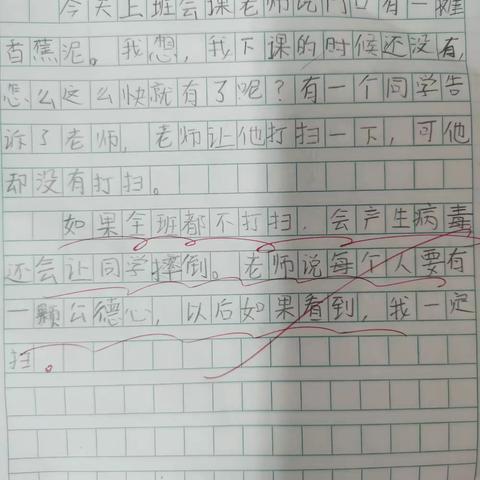 今天上班会课老师说门口有一摊
香蕉泥。我想，我下课的时候还没有，
怎么这么快就有了呢？有一个同学告
诉了老师，老师让他打扫一下，可他
却没有打扫。
如果全班都不打扫，会产生病毒
还会让同学摔倒。老师说每个人要有
一颗公德心，以后如果看到，我一定
扫。